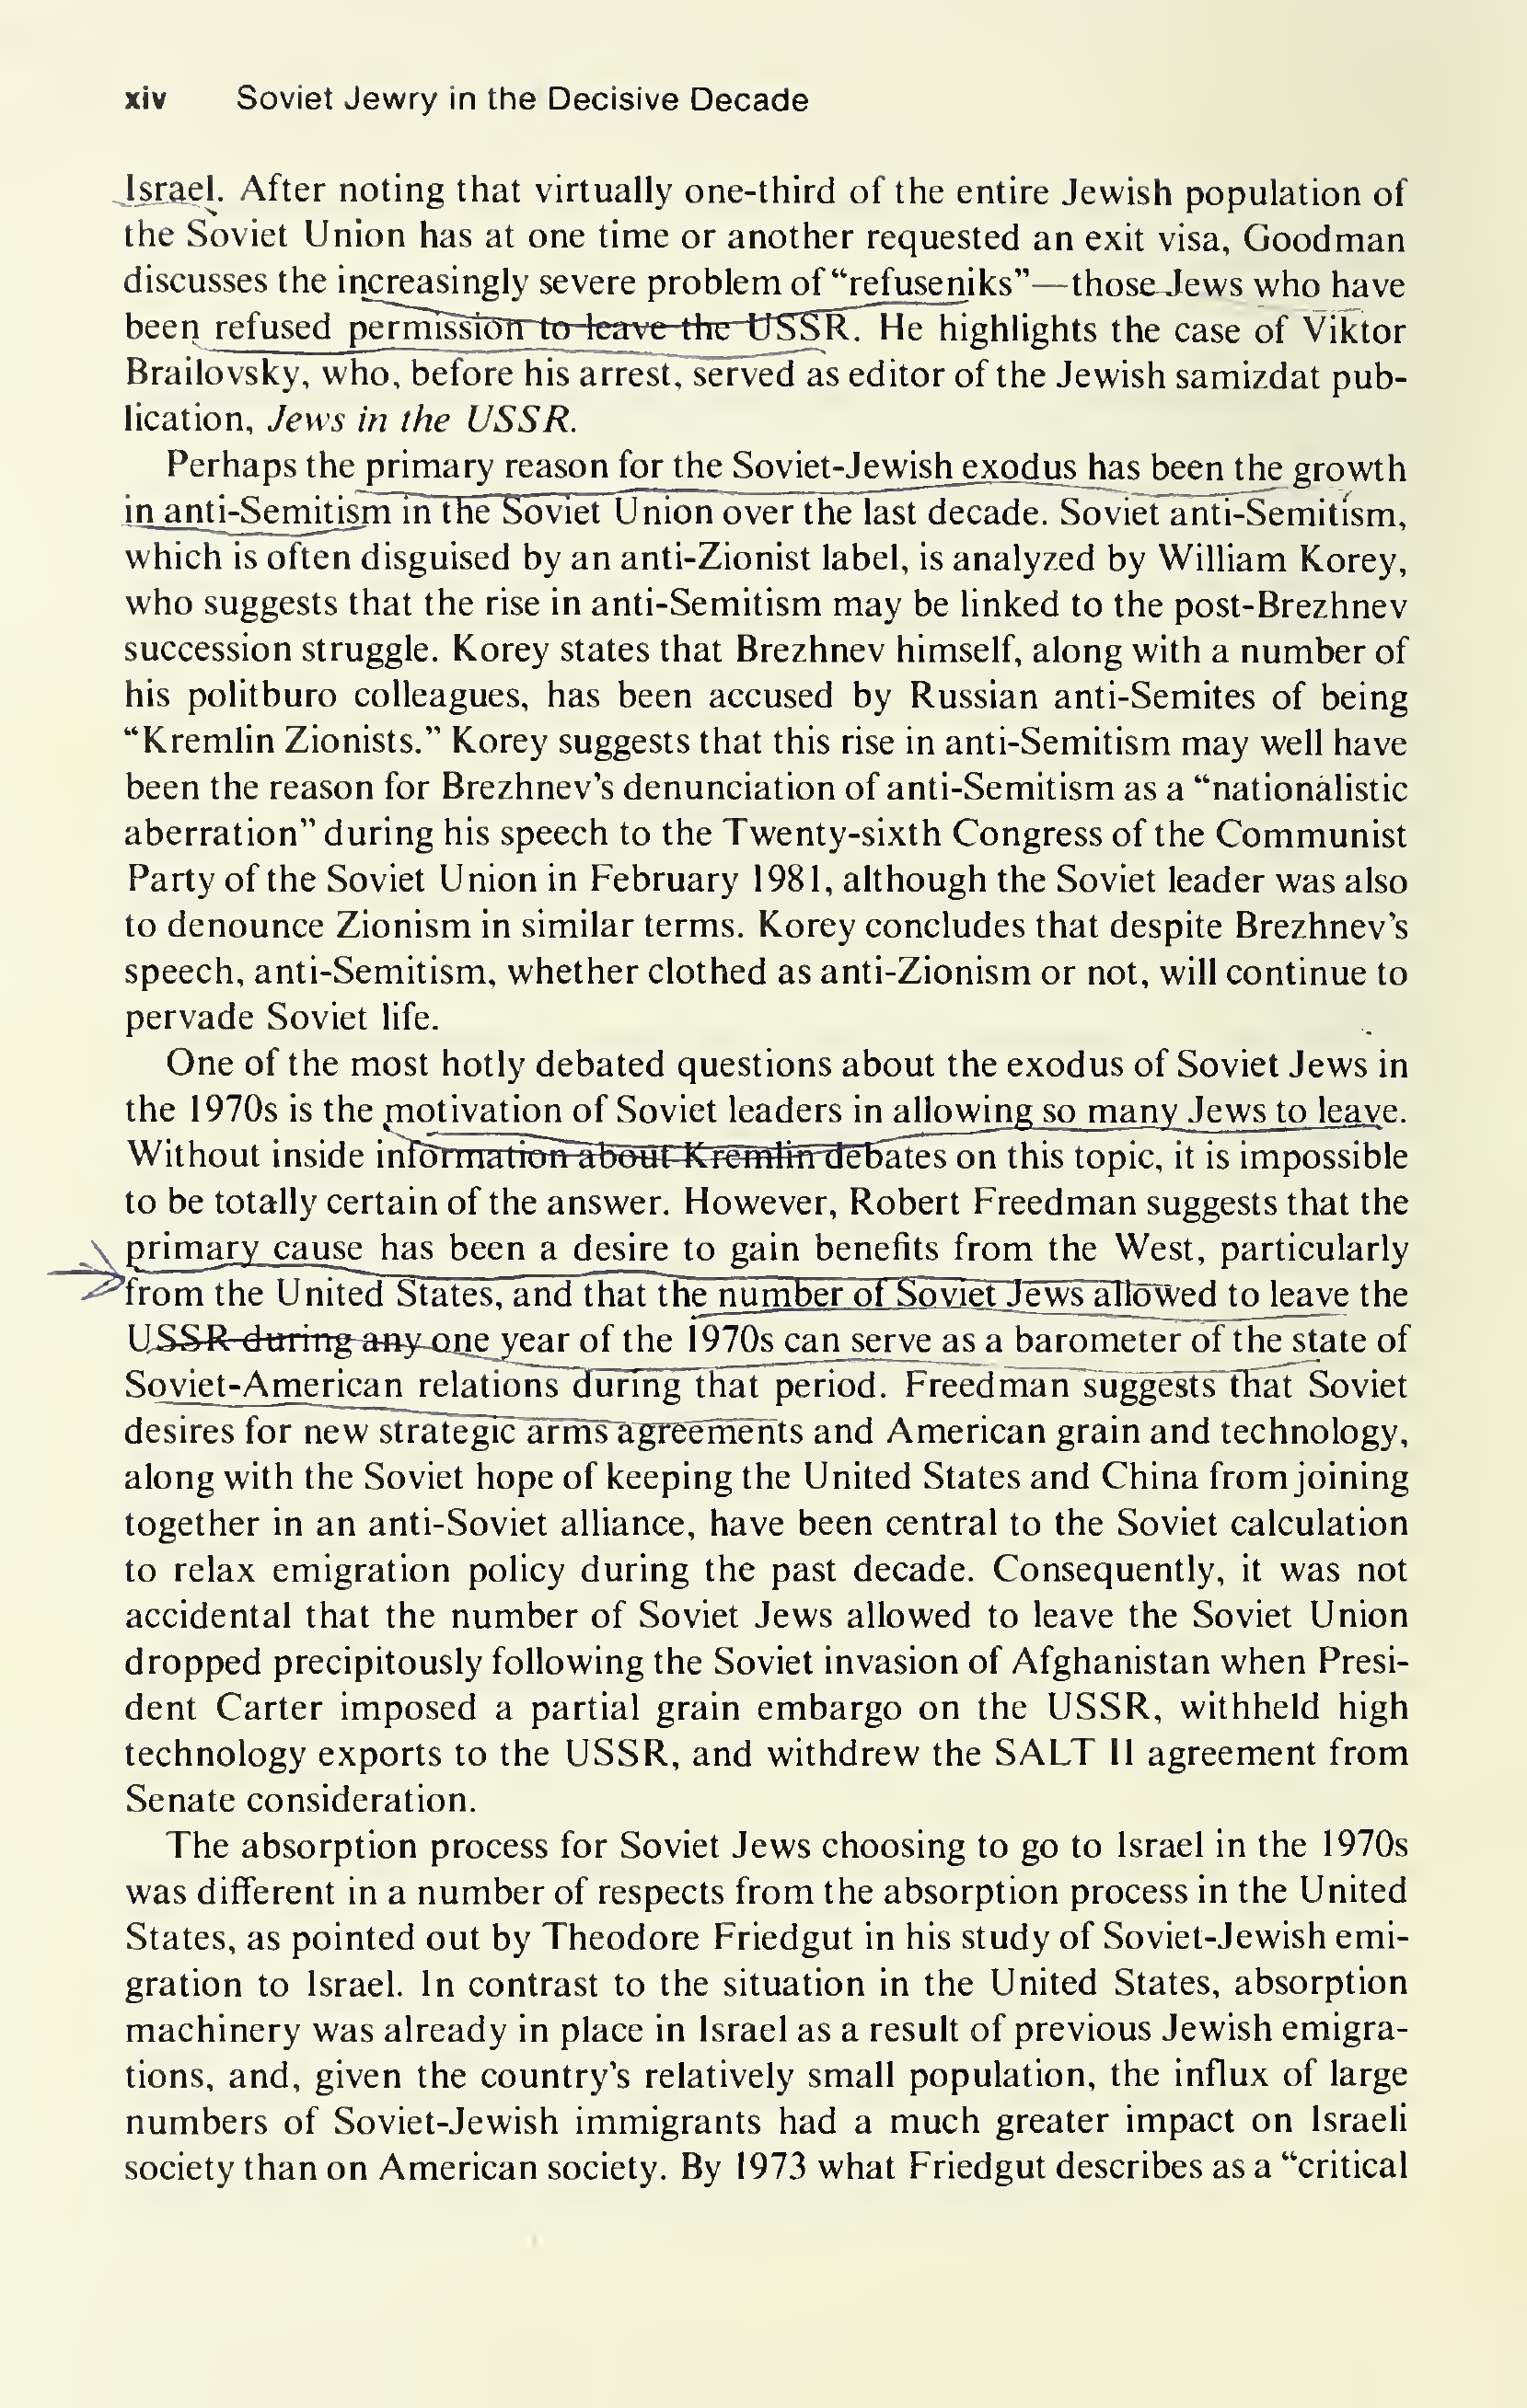 xiv Soviet Jewry in the Decisive Decade
Israel. After noting that virtually one-third of the entire Jewish population of
the Soviet Union has at one time or another requested an exit visa, Goodman
discusses the increasingly severe problem of “refuseniks”—those Jews who have
been refused permission to leave the USSR. He highlights the case of Viktor
Brailovsky, who, before his arrest, served as editor of the Jewish samizdat pub-
lication, Jews in the USSR.
Perhaps the primary reason for the Soviet-Jewish exodus has been the growth
in anti-Semitism in the Soviet Union over the last decade. Soviet anti-Semitism,
which is often disguised by an anti-Zionist label, is analyzed by William Korey,
who suggests that the rise in anti-Semitism may be linked to the post-Brezhnev
succession struggle. Korey states that Brezhnev himself, along with a number of
his politburo colleagues, has been accused by Russian anti-Semites of being
“Kremlin Zionists.” Korey suggests that this rise in anti-Semitism may well have
been the reason for Brezhnev’s denunciation of anti-Semitism as a “nationalistic
aberration” during his speech to the Twenty-sixth Congress of the Communist
Party of the Soviet Union in February 1981, although the Soviet leader was also
to denounce Zionism in similar terms. Korey concludes that despite Brezhnev’s
speech, anti-Semitism, whether clothed as anti-Zionism or not, will continue to
pervade Soviet life.
One of the most hotly debated questions about the exodus of Soviet Jews in
the 1970s is the motivation of Soviet leaders in allowing so many Jews to leave.
Without inside information about Kremlin debates on this topic, it is impossible
to be totally certain of the answer. However, Robert Freedman suggests that the
primary cause has been a desire to gain benefits from the West, particularly
from the United States, and that the number of Soviet Jews allowed to leave the
USSR during any one year of the 1970s can serve as a barometer of the state of
Soviet-American relations during that period. Freedman suggests that Soviet
desires for new strategic arms agreements and American grain and technology,
along with the Soviet hope of keeping the United States and China from joining
together in an anti-Soviet alliance, have been central to the Soviet calculation
to relax emigration policy during the past decade. Consequently, it was not
accidental that the number of Soviet Jews allowed to leave the Soviet Union
dropped precipitously following the Soviet invasion of Afghanistan when Presi-
dent Carter imposed a partial grain embargo on the USSR, withheld high
technology exports to the USSR, and withdrew the SALT II agreement from
Senate consideration.
The absorption process for Soviet Jews choosing to go to Israel in the 1970s
was different in a number of respects from the absorption process in the United
States, as pointed out by Theodore Friedgut in his study of Soviet-Jewish emi-
gration to Israel. In contrast to the situation in the United States, absorption
machinery was already in place in Israel as a result of previous Jewish emigra-
tions, and, given the country’s relatively small population, the influx of large
numbers of Soviet-Jewish immigrants had a much greater impact on Israeli
society than on American society. By 1973 what Friedgut describes as a “critical